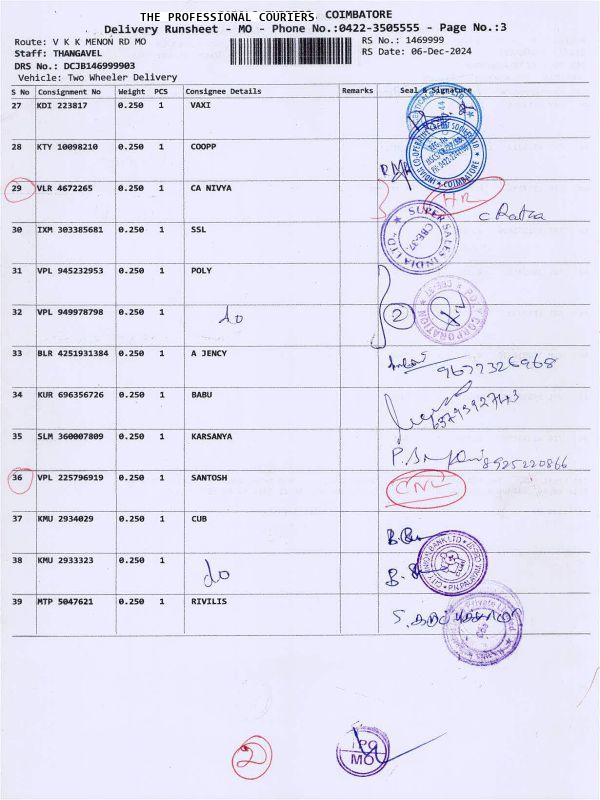 THE PROFESSIONAL COURIERS COIMBATORE
Delivery Runsheet - MO - Phone No.:0422-3505555 - Page No.:3
Route: V K K MENON RD MO
RS No.: 1469999
Staff: THANGAVEL
RS Date: 06-Dec-2024
DRS No.: DCJB146999903
Vehicle: Two Wheeler Delivery
S No Consignment No Weight PCS Consignee Details Remarks Seal & Signature
27 KDI 223817 0.250 1 VAXI
28 KTY 10098210 0.250 1 COOPP
COIMBATORE
29 VLR 4672265 0.250 1 CA NIVYA
30 IXM 303385681 0.250 1 SSL SUPER SALES INDIA LTD CBE-37.
31 VPL 945232953 0.250 1 POLY
32 VPL 949978798 0.250 1 do 2 POLY CORPORATION
33 BLR 4251931384 0.250 1 A JENCY 9677326968
34 KUR 696356726 0.250 1 BABU
35 SLM 360007809 0.250 1 KARSANYA 8925220866
36 VPL 225796919 0.250 1 SANTOSH
37 KMU 2934029 0.250 1 CUB
38 KMU 2933323 0.250 1 do CITY UNION BANK LTD
39 MTP 5047621 0.250 1 RIVILIS Private Limited
2
MO